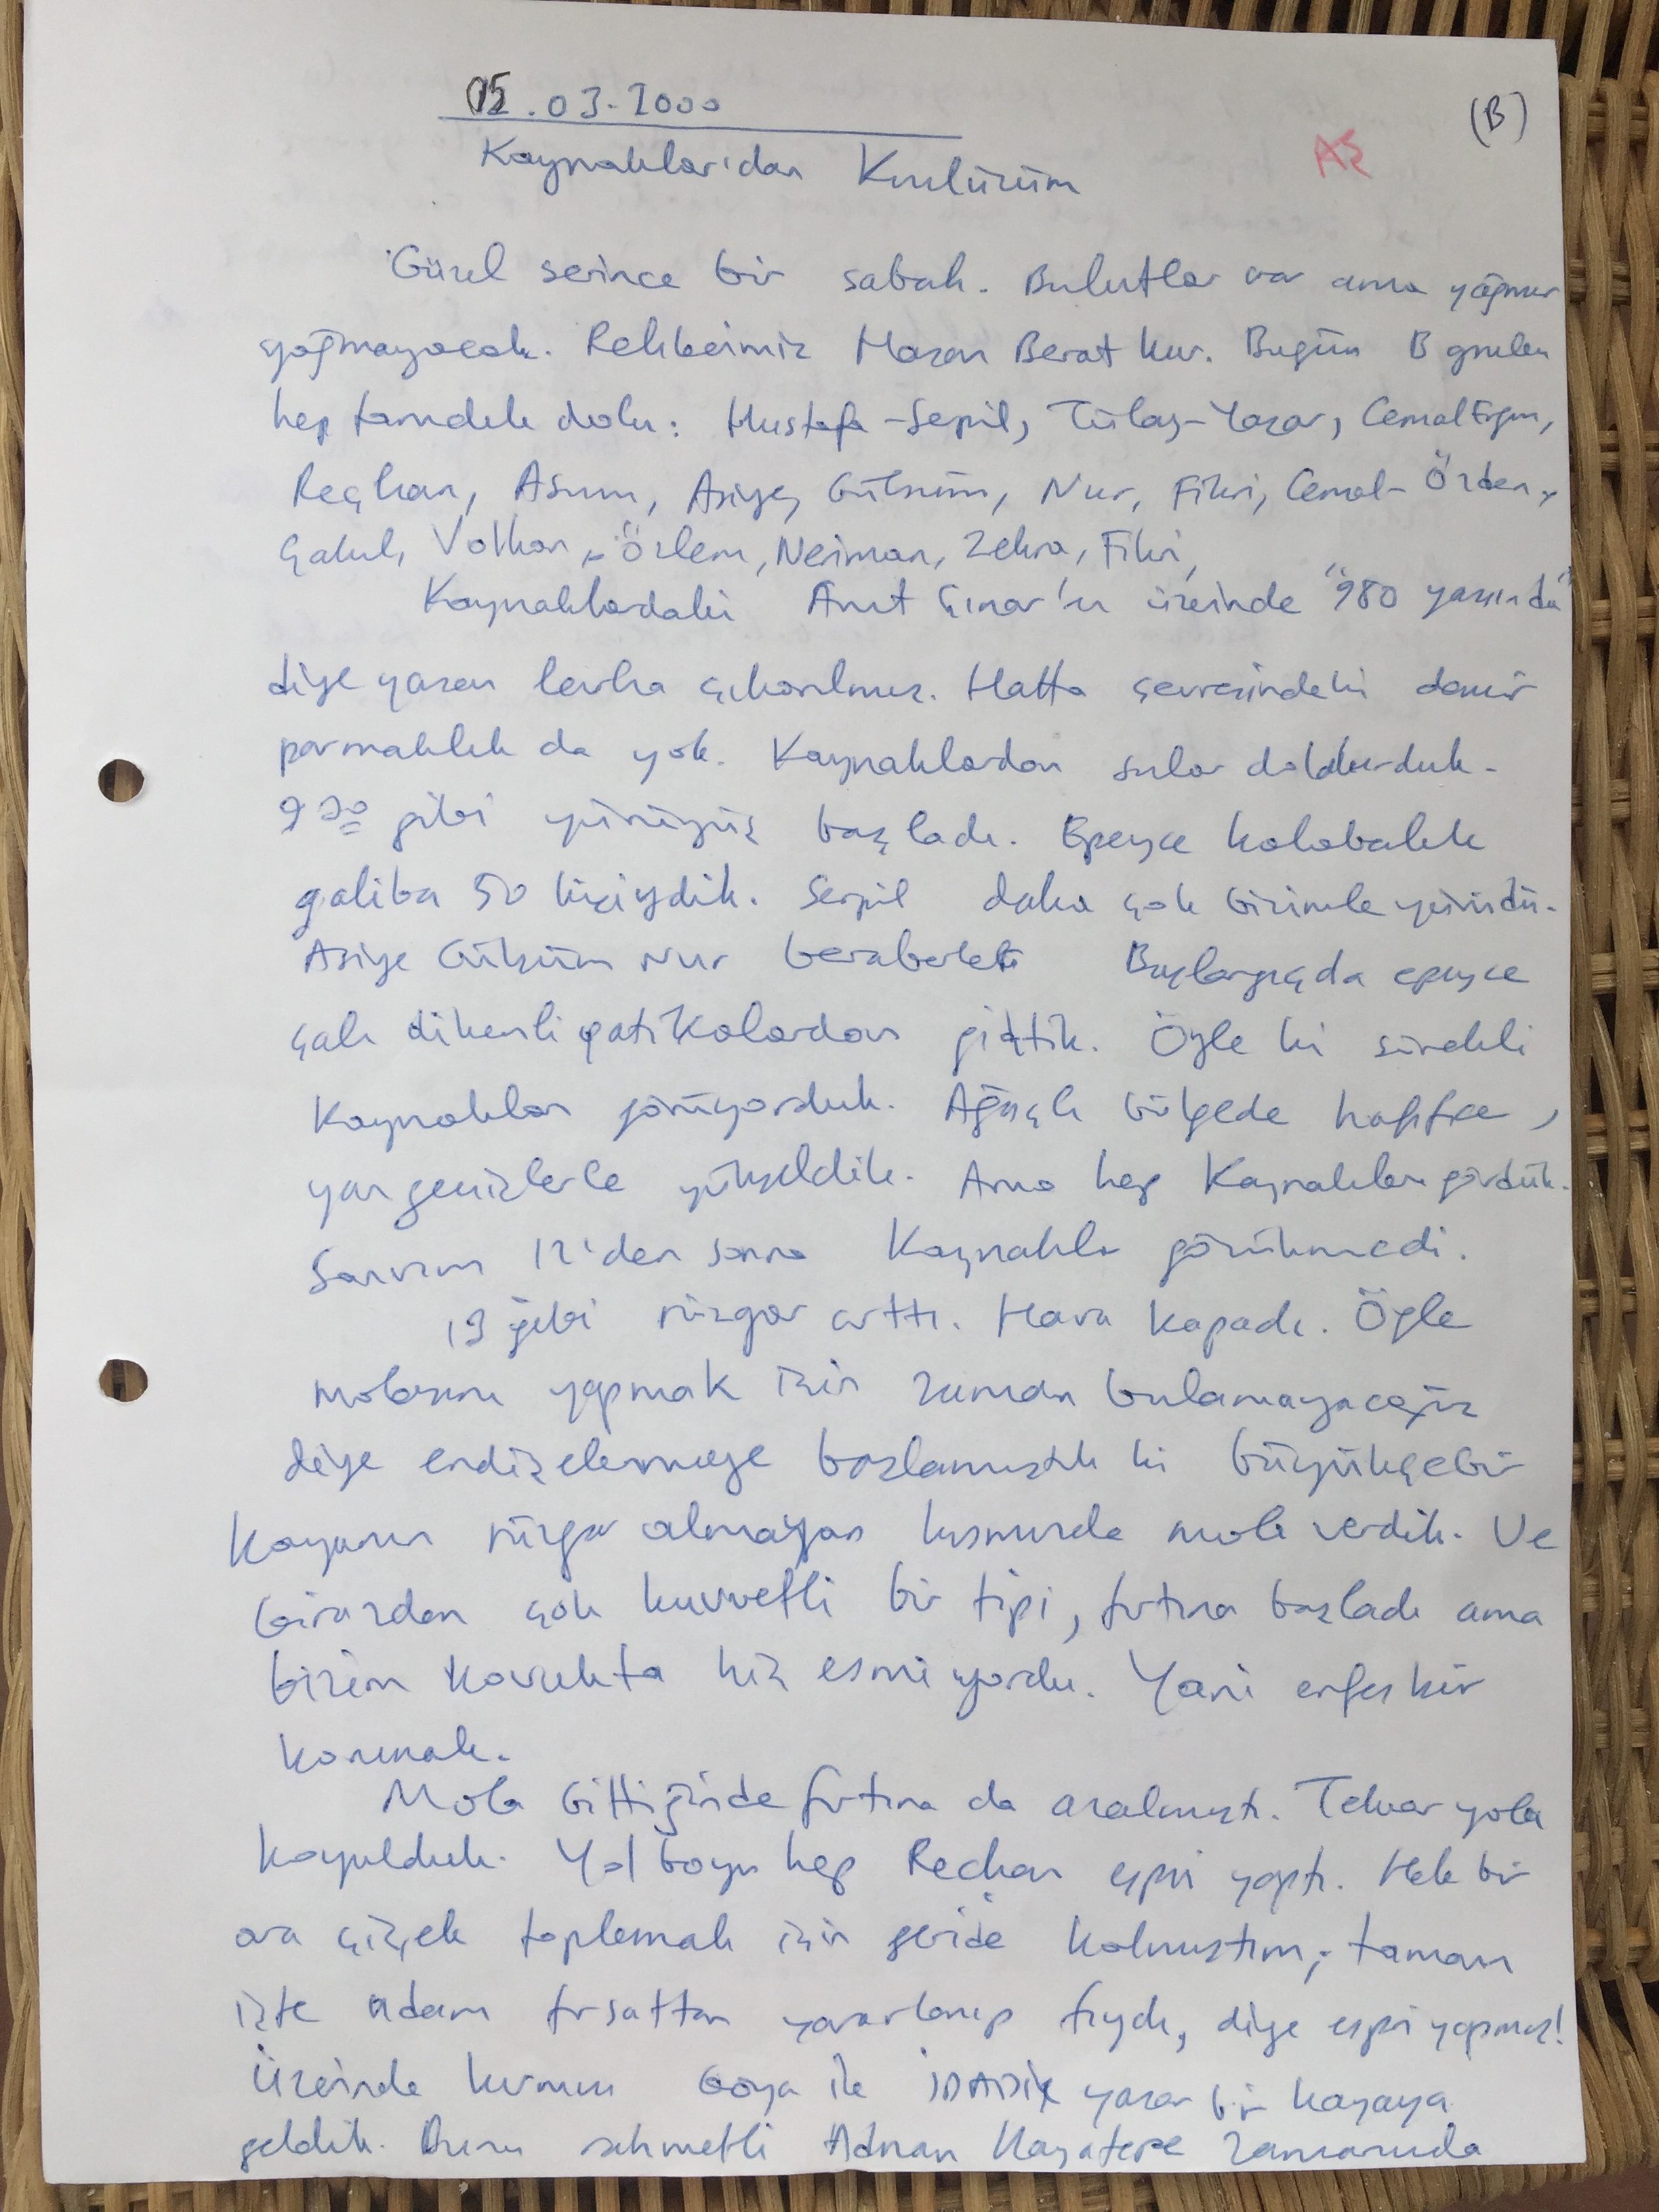 05.03.2000
(B)
AŞ
Kaynaklar'dan Kuruüzüm
Güzel serince bir sabah. Bulutlar var ama yağmur
yağmayacak. Rehberimiz Hasan Berat kur. Bugün B grubu
hep tanıdık dolu: Mustafa-Serpil, Tülay-Yaşar, Cemal Ergun,
Reçhan, Asım, Asiye, Gülsüm, Nur, Fikri, Cemal-Özden,
Volkan, Özlem, Neriman, Zehra, Fikri,
Kaynaklardaki Anıt Çınar'ın üzerinde "980 yaşında"
diye yazan levha çıkarılmış. Hatta çevresindeki demir
parmaklık da yok. Kaynaklardan sular doldurduk.
9 30 gibi yürüyüş başladı. Epeyce kalabalık
galiba 50 kişiydik. Serpil daha çok bizimle yürüdü.
Asiye Gülsüm Nur beraberdi Başlangıçda epeyce
çalı dikenli patikalardan gittik. Öyle ki sürekli
Kaynaklar görüyorduk. Ağaçlı bölgede hafifçe,
yan geçişlerle yükseldik. Ama hep Kaynakları gördük.
Sanırım 12'den sonra Kaynaklar görülmedi.
13 gibi rüzgar arttı. Hava kapadı. Öğle
molasını yapmak için zaman bulamayacağız
diye endişelenmeye başlamıştık ki büyükçe bir
kayanın rüzgar almayan kısmında mola verdik. Ve
birazdan çok kuvvetli bir tipi, fırtına başladı ama
bizim kovukta hiç esmiyordu. Yani enfes bir
korunak.
Mola bittiğinde fırtına da azalmıştı. Tekrar yola
koyulduk. Yol boyu hep Reçhan espri yaptı. Hele bir
ara çiçek toplamak için geride kalmıştım; tamam
işte adam fırsattan yararlanıp tüydü, diye espri yapmış!
Üzerinde kırmızı boya ile İDADİK yazan bir kayaya
geldik. Bunu rahmetli Adnan Kayatepe zamanında